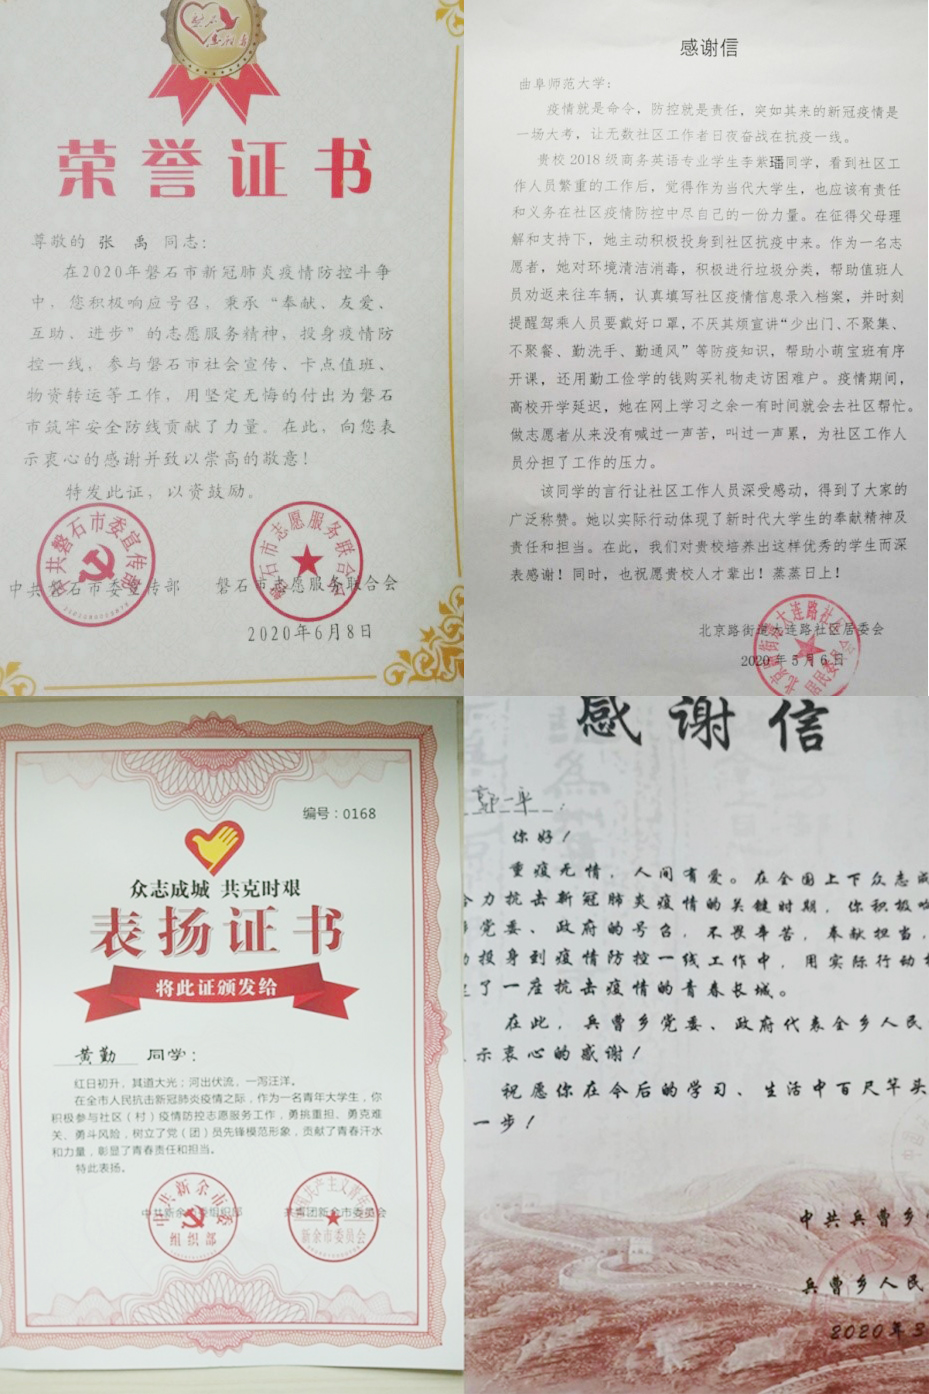 荣誉证书
尊敬的 张 禹 同志：
在2020年磐石市新冠肺炎疫情防控斗争
中，您积极响应号召，秉承“奉献、友爱、
互助、进步”的志愿服务精神，投身疫情防
控一线，参与磐石市社会宣传、卡点值班、
物资转运等工作，用坚定无悔的付出为磐石
市筑牢安全防线贡献了力量。在此，向您表
示衷心的感谢并致以崇高的敬意！
特发此证，以资鼓励。
中共磐石市委宣传部 磐石市志愿服务联合会
2020年6月8日
感谢信
曲阜师范大学：
疫情就是命令，防控就是责任，突如其来的新冠疫情是
一场大考，让无数社区工作者日夜奋战在抗疫一线。
贵校 2018 级商务英语专业学生李紫璠同学，看到社区工
作人员繁重的工作后，觉得作为当代大学生，也应该有责任
和义务在社区疫情防控中尽自己的一份力量。在征得父母理
解和支持下，她主动积极投身到社区抗疫中来。作为一名志
愿者，她对环境清洁消毒，积极进行垃圾分类，帮助值班人
员劝返来往车辆，认真填写社区疫情信息录入档案，并时刻
提醒驾乘人员要戴好口罩，不厌其烦宣讲“少出门、不聚集、
不聚餐、勤洗手、勤通风”等防疫知识，帮助小萌宝班有序
开课，还用勤工俭学的钱购买礼物走访困难户。疫情期间，
高校开学延迟，她在网上学习之余一有时间就会去社区帮忙。
做志愿者从来没有喊过一声苦，叫过一声累，为社区工作人
员分担了工作的压力。
该同学的言行让社区工作人员深受感动，得到了大家的
广泛称赞。她以实际行动体现了新时代大学生的奉献精神及
责任和担当。在此，我们对贵校培养出这样优秀的学生而深
表感谢！同时，也祝愿贵校人才辈出！蒸蒸日上！
北京路街道大连路社区居委会
2020 年 5 月 6 日
编号：0168
众志成城 共克时艰
表扬证书
将此证颁发给
黄勤 同学：
红日初升，其道大光；河出伏流，一泻汪洋。
在全市人民抗击新冠肺炎疫情之际，作为一名青年大学生，你
积极参与社区（村）疫情防控志愿服务工作，勇挑重担、勇克难
关、勇斗风险，树立了党（团）员先锋模范形象，贡献了青春汗水
和力量，彰显了青春责任和担当。
特此表扬。
中共新余市委组织部 共青团新余市委员会
感谢信
郭一平：
你好！
重疫无情，人间有爱。在全国上下众志成
力抗击新冠肺炎疫情的关键时期，你积极响
党委、政府的号召，不畏辛苦，奉献担当，
投身到疫情防控一线工作中，用实际行动
了一座抗击疫情的青春长城。
在此，兵曹乡党委、政府代表全乡人民
示衷心的感谢！
祝愿你在今后的学习、生活中百尺竿头
一步！
中共兵曹乡
兵曹乡人民
2020年3